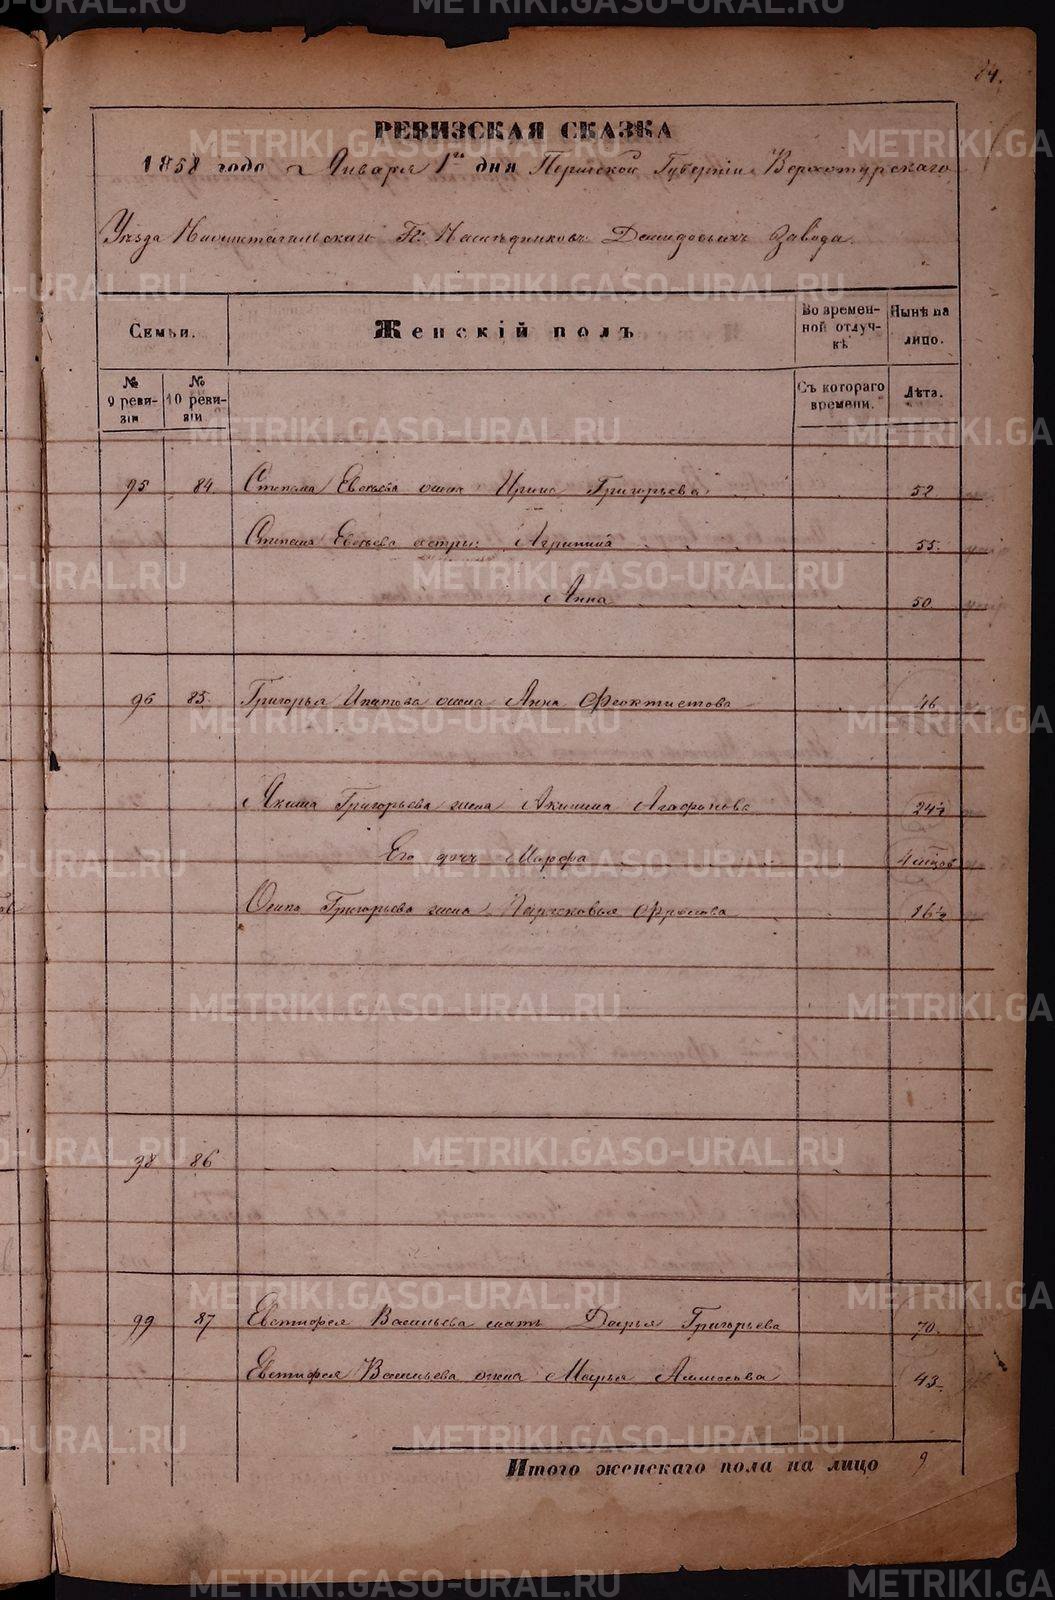 84.
РЕВИЗСКАЯ СКАЗКА
1858 года Января 1го дня Пермской Губерніи Верхотурскаго
Уѣзда Нижнетагильскаго Гг: Наслѣдниковъ Демидовыхъ Завода.
Семьи. Женскій полъ Во временной отлучкѣ Нынѣ на лицо.
№ 9 ревизіи № 10 ревизіи Съ котораго времени. Лѣта.
95 84. Степана Евсѣева жена Ирина Григорьева 52
Степана Евсѣева сестры: Агрипина 55.
Анна 50
96 85. Григорья Ипатова жена Анна Феоктистова 46
Якима Григорьева жена Акилина Агафонова 24½
Его дочь Марфа 4 мѣсцов
Осипа Григорьева жена Парасковья Фролова 16½
98 86
99 87 Евстифея Васильева мать Дарья Григорьева 70.
Евстифея Васильева жена Марья Аммосова 43.
Итого женскаго пола на лицо 9
METRIKI.GASO-URAL.RU